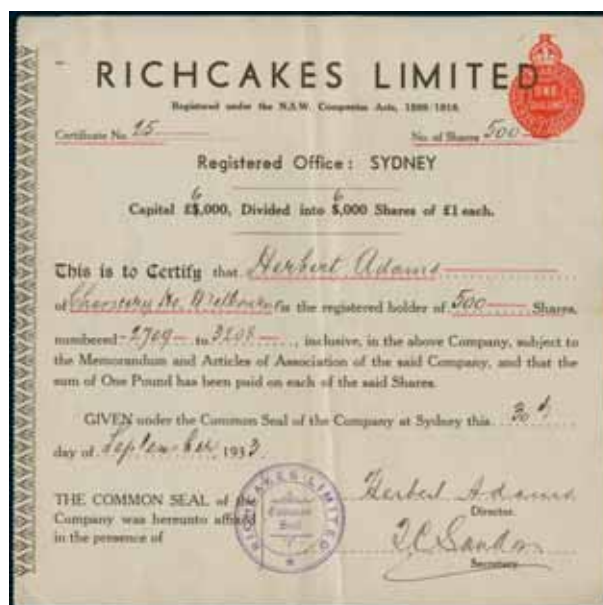 RICHCAKES LIMITED
ONE
Registered under the N.S.W. Companies Acts, 1899/1918.
Certificate No. 25 No. of Shares 500
Registered Office: SYDNEY
Capital £6,000, Divided into 6,000 Shares of £1 each.
This is to Certify that Herbert Adams
of Chancery Melbourne is the registered holder of 500 Shares,
numbered 2709 to 3208, inclusive, in the above Company, subject to
the Memorandum and Articles of Association of the said Company, and that the
sum of One Pound has been paid on each of the said Shares.
GIVEN under the Common Seal of the Company at Sydney this 30th
day of September 1933
THE COMMON SEAL of the
Company was hereunto affixed
in the presence of
RICHCAKES LIMITED
Common
Seal
Herbert Adams
Director.
Secretary